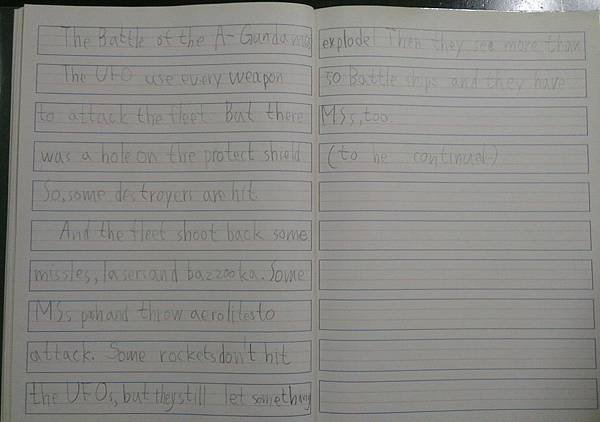 The Battle of the A-Gundam
The UFO use every weapon
to attack the fleet. But there
was a hole on the protect shield.
So, some destroyers are hit.
And the fleet shoot back some
missles, lasers and bazzooka. Some
MSs and throw aerolites to
attack. Some rockets don't hit
the UFOs, but they still let something
explode! Then they see more than
50 Battle ships and they have
MSs, too.
(to be continual)